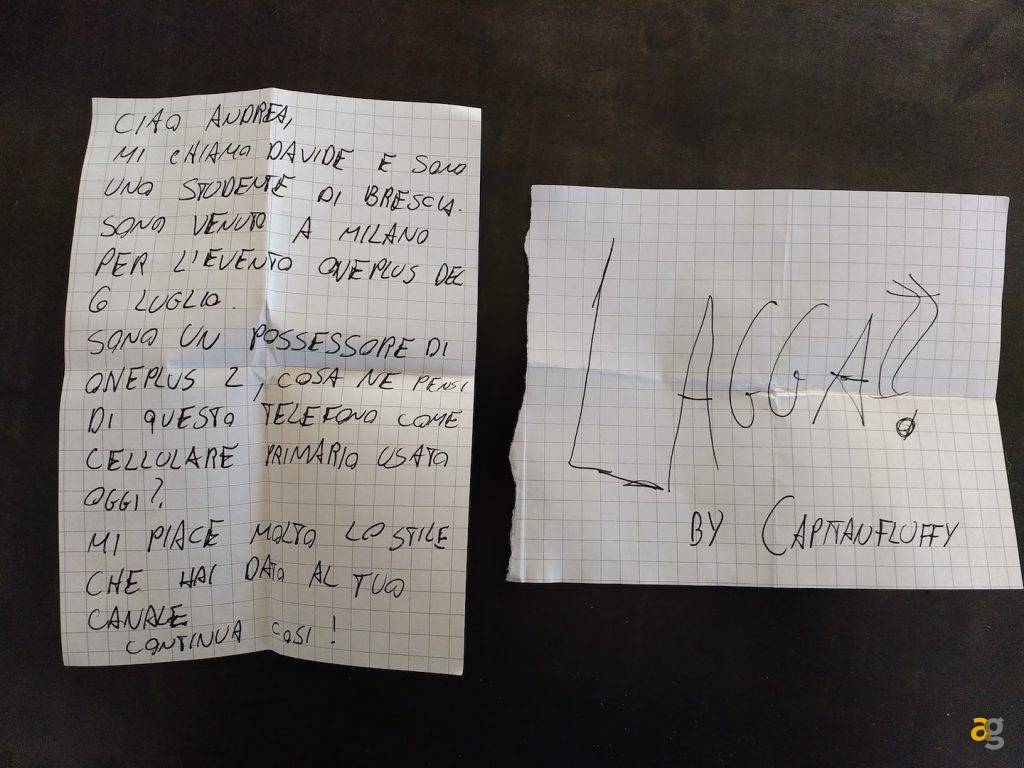 CIAO ANDREA,
MI CHIAMO DAVIDE E SONO
UNO STUDENTE DI BRESCIA.
SONO VENUTO A MILANO
PER L'EVENTO ONEPLUS DEL
6 LUGLIO.
SONO UN POSSESSORE DI
ONEPLUS 2, COSA NE PENSI
DI QUESTO TELEFONO COME
CELLULARE PRIMARIO USATO
OGGI?
MI PIACE MOLTO LO STILE
CHE HAI DATO AL TUO
CANALE
CONTINUA COSI!
LAGGA?
BY CAPITANFLUFFY
ag